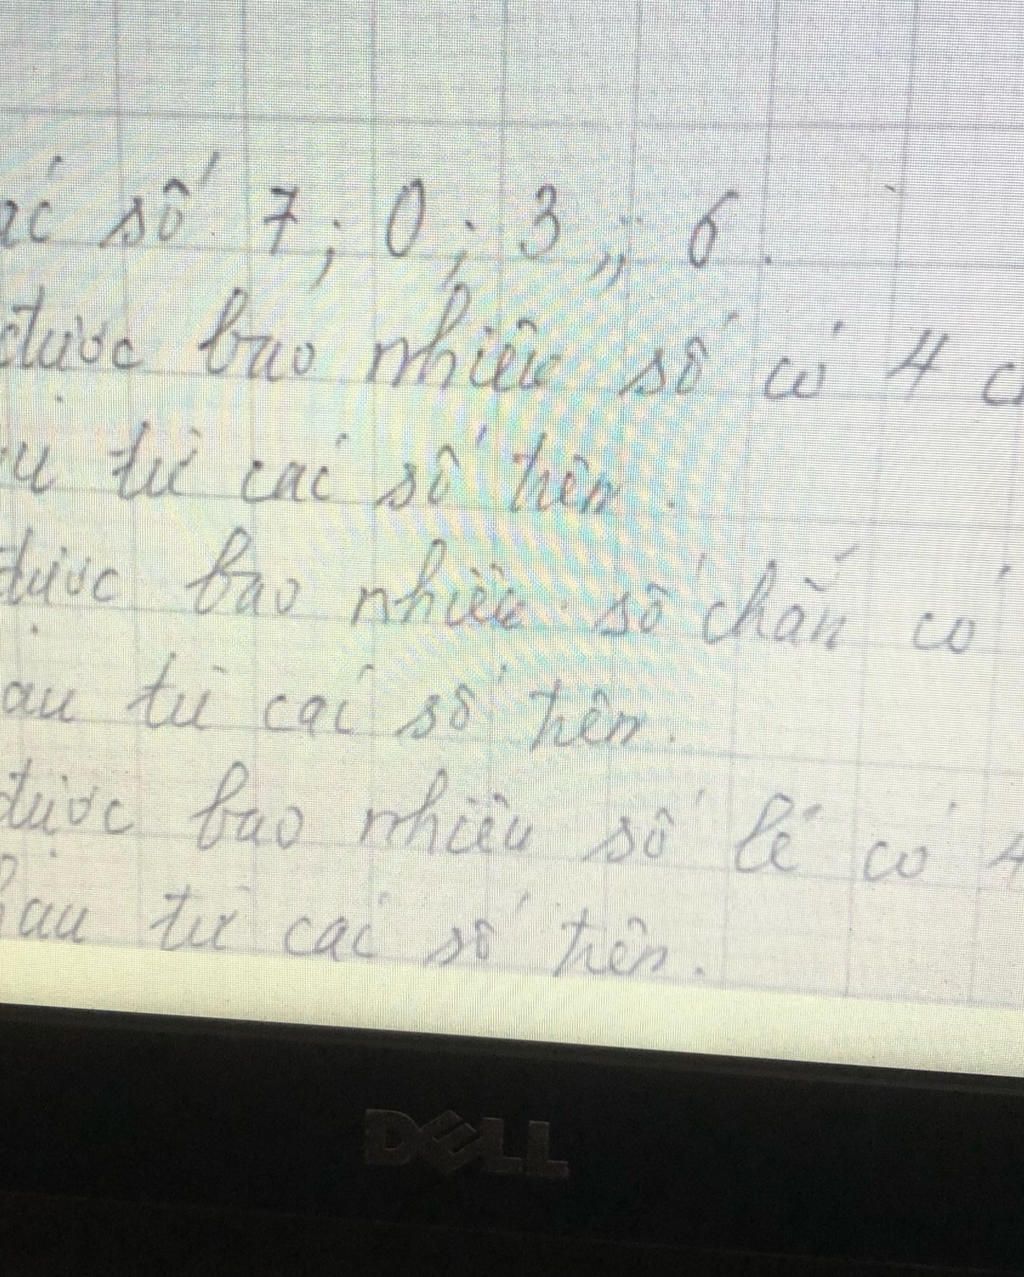 số 7; 0; 3; 6.
được bao nhiêu số có 4
từ các số trên.
được bao nhiêu số chẵn có
từ các số trên.
được bao nhiêu số lẻ có 4
từ các số trên.
DELL